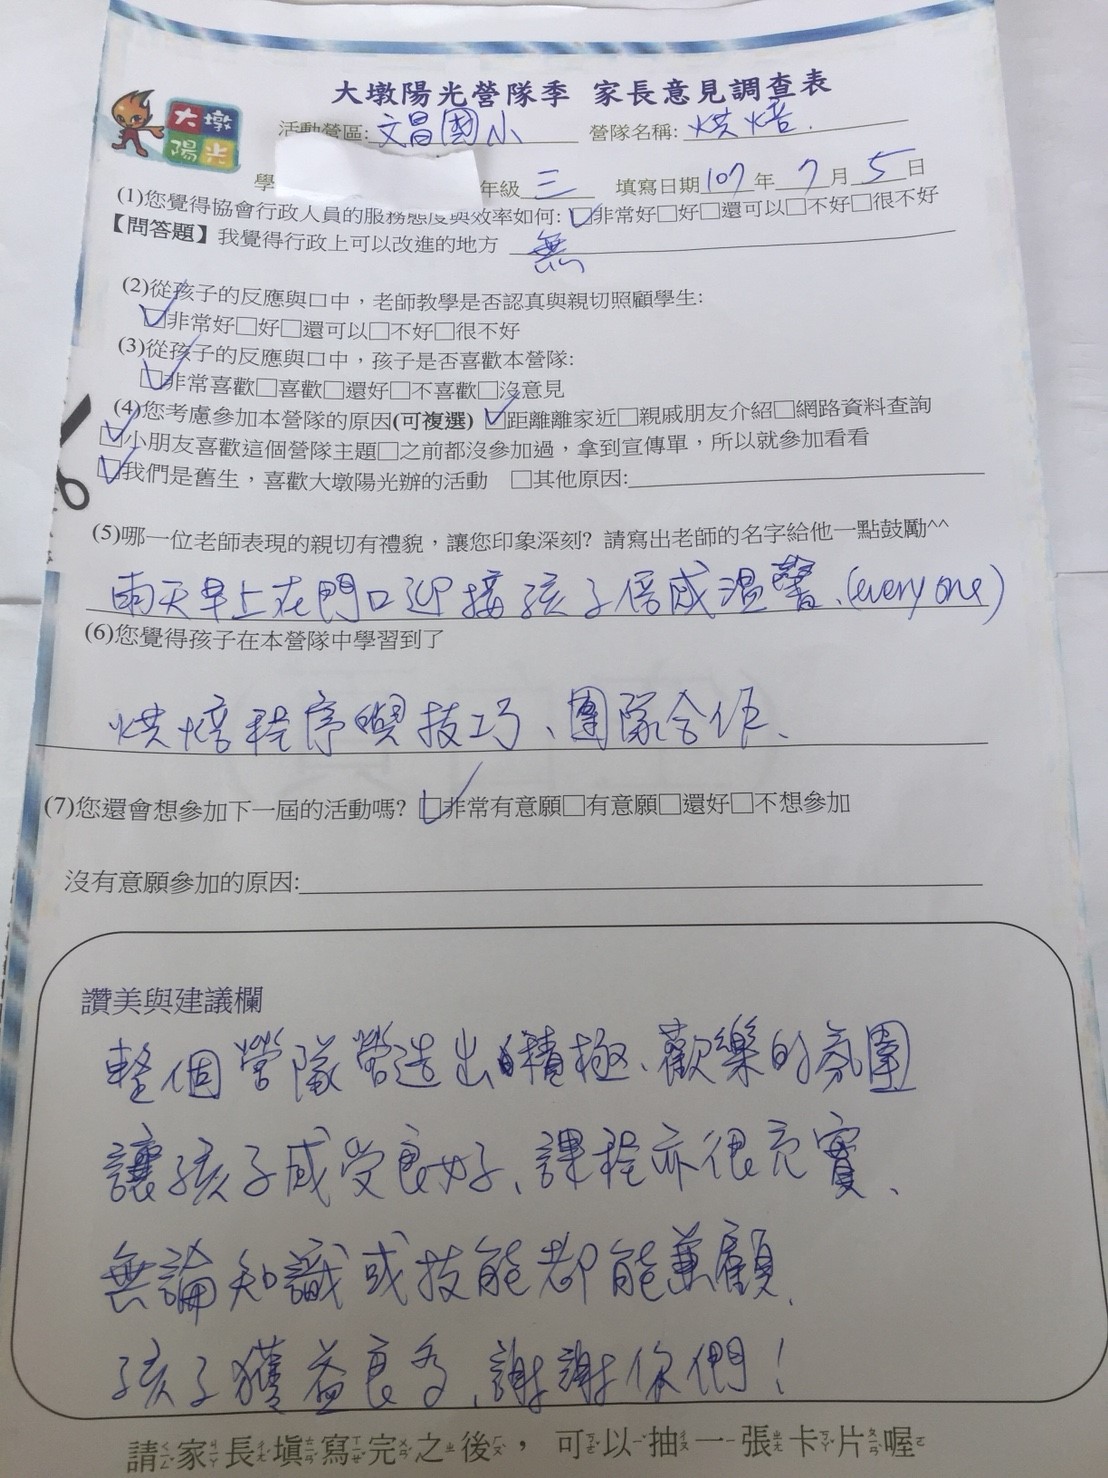 大墩陽光營隊季 家長意見調查表
大墩
陽光
活動營區:文昌國小 營隊名稱:烘焙.
學 年級三 填寫日期107年7月5日
(1)您覺得協會行政人員的服務態度與效率如何:☑非常好□好□還可以□不好□很不好
【問答題】我覺得行政上可以改進的地方 無
(2)從孩子的反應與口中，老師教學是否認真與親切照顧學生:
☑非常好□好□還可以□不好□很不好
(3)從孩子的反應與口中，孩子是否喜歡本營隊:
☑非常喜歡□喜歡□還好□不喜歡□沒意見
(4)您考慮參加本營隊的原因(可複選) ☑距離離家近□親戚朋友介紹□網路資料查詢
☑小朋友喜歡這個營隊主題□之前都沒參加過，拿到宣傳單，所以就參加看看
☑我們是舊生，喜歡大墩陽光辦的活動 □其他原因:
(5)哪一位老師表現的親切有禮貌，讓您印象深刻? 請寫出老師的名字給他一點鼓勵^^
雨天早上在門口迎接孩子倍感溫馨、(every one)
(6)您覺得孩子在本營隊中學習到了
烘焙程序與技巧、團隊合作、
(7)您還會想參加下一屆的活動嗎? ☑非常有意願□有意願□還好□不想參加
沒有意願參加的原因:
讚美與建議欄
整個營隊營造出積極、歡樂的氛圍
讓孩子感受良好、課程亦很充實、
無論知識或技能都能兼顧、
孩子獲益良多、謝謝你們！
請家長填寫完之後，可以抽一張卡片喔